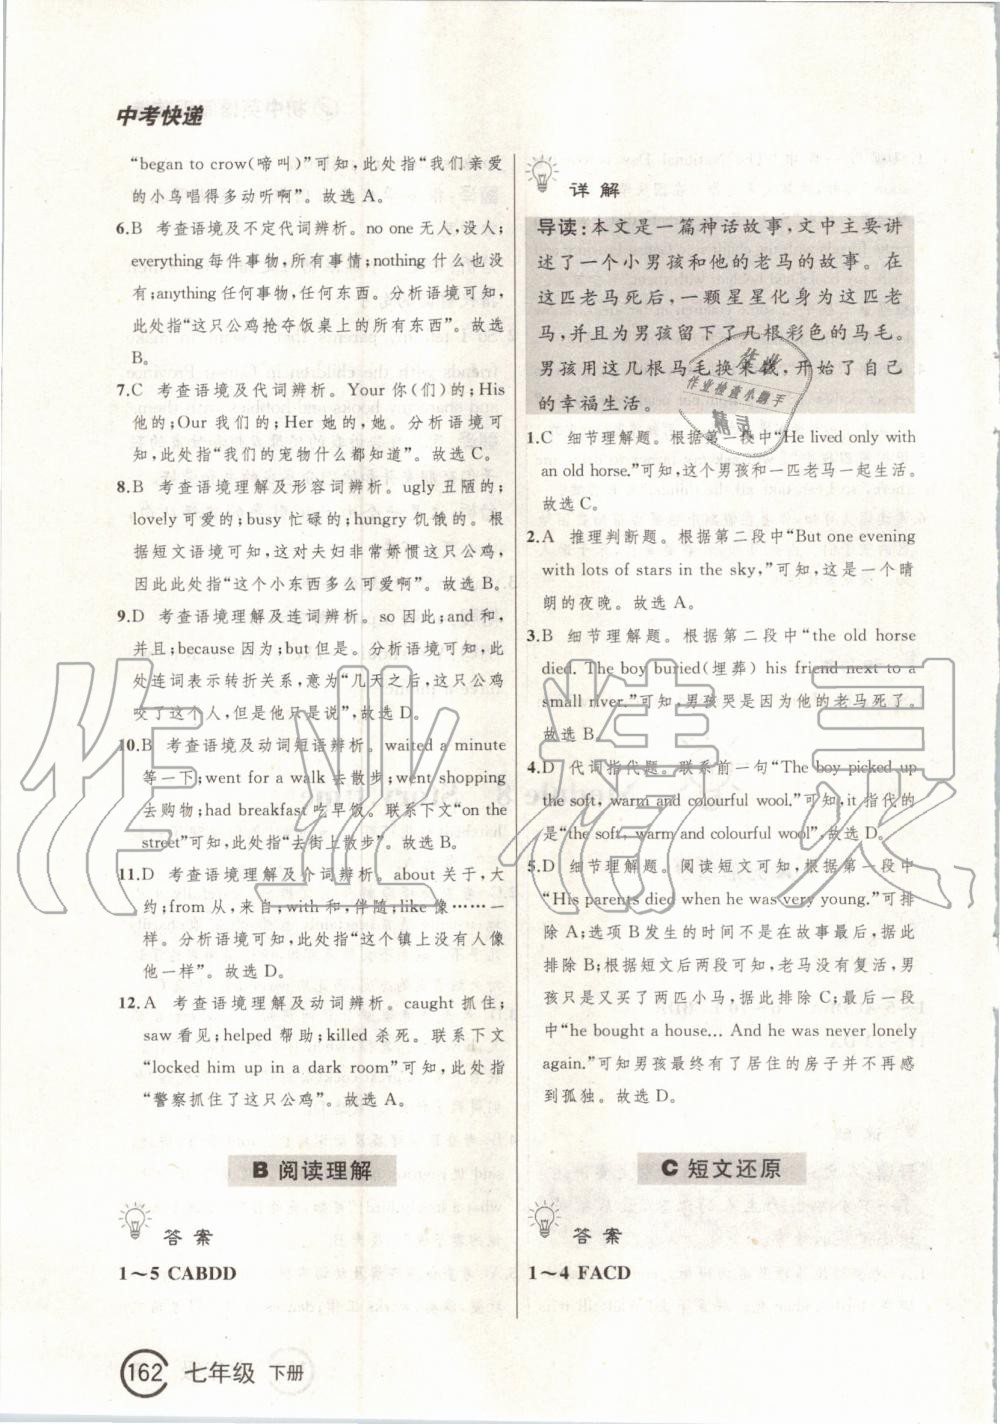 中考快递
“began to crow(啼叫)”可知,此处指“我们亲爱
的小鸟唱得多动听啊”。故选 A。
6.B 考查语境及不定代词辨析。no one 无人,没人;
everything 每件事物,所有事情;nothing 什么也没
有;anything 任何事物,任何东西。分析语境可知,
此处指“这只公鸡抢夺饭桌上的所有东西”。故选
B。
7.C 考查语境及代词辨析。Your 你(们)的;His
他的;Our 我们的;Her 她的,她。分析语境可
知,此处指“我们的宠物什么都知道”。故选 C。
8.B 考查语境理解及形容词辨析。ugly 丑陋的;
lovely 可爱的;busy 忙碌的;hungry 饥饿的。根
据短文语境可知,这对夫妇非常娇惯这只公鸡,
因此此处指“这个小东西多么可爱啊”。故选 B。
9.D 考查语境理解及连词辨析。so 因此;and 和,
并且;because 因为;but 但是。分析语境可知,此
处连词表示转折关系,意为“几天之后,这只公鸡
咬了这个人,但是他只是说”,故选 D。
10.B 考查语境及动词短语辨析。waited a minute
等一下;went for a walk 去散步;went shopping
去购物;had breakfast 吃早饭。联系下文“on the
street”可知,此处指“去街上散步”。故选 B。
11.D 考查语境理解及介词辨析。about 关于,大
约;from 从,来自;with 和,伴随;like 像……一
样。分析语境可知,此处指“这个镇上没有人像
他一样”。故选 D。
12.A 考查语境理解及动词辨析。caught 抓住;
saw 看见;helped 帮助;killed 杀死。联系下文
“locked him up in a dark room”可知,此处指
“警察抓住了这只公鸡”。故选 A。
B 阅读理解
答案
1～5 CABDD
详解
导读:本文是一篇神话故事,文中主要讲
述了一个小男孩和他的老马的故事。在
这匹老马死后,一颗星星化身为这匹老
马,并且为男孩留下了几根彩色的马毛。
男孩用这几根马毛换来钱,开始了自己
的幸福生活。
1.C 细节理解题。根据第一段中“He lived only with
an old horse.”可知,这个男孩和一匹老马一起生活。
故选 C。
2.A 推理判断题。根据第二段中“But one evening
with lots of stars in the sky,”可知,这是一个晴
朗的夜晚。故选 A。
3.B 细节理解题。根据第二段中“the old horse
died. The boy buried(埋葬) his friend next to a
small river.”可知,男孩哭是因为他的老马死了。
故选 B。
4.D 代词指代题。联系前一句“The boy picked up
the soft, warm and colourful wool.”可知,it 指代的
是“the soft, warm and colourful wool”,故选 D。
5.D 细节理解题。阅读短文可知,根据第一段中
“His parents died when he was very young.”可排
除 A;选项 B 发生的时间不是在故事最后,据此
排除 B;根据短文后两段可知,老马没有复活,男
孩只是又买了两匹小马,据此排除 C;最后一段
中“he bought a house... And he was never lonely
again.”可知男孩最终有了居住的房子并不再感
到孤独。故选 D。
C 短文还原
答案
1～4 FACD
作业精灵
作业检查小助手
精灵
162 七年级 下册